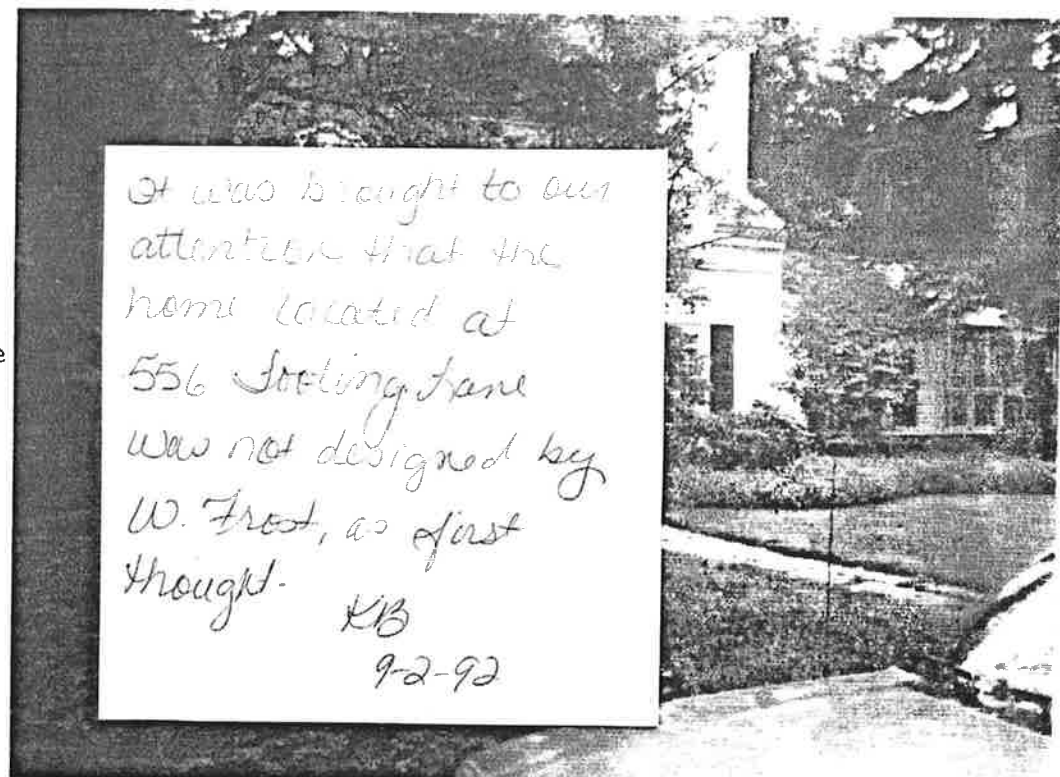 It was brought to our
attention that the
home located at
556 Tooting Lane
was not designed by
W. Frost, as first
thought.
KB
9-2-92
e